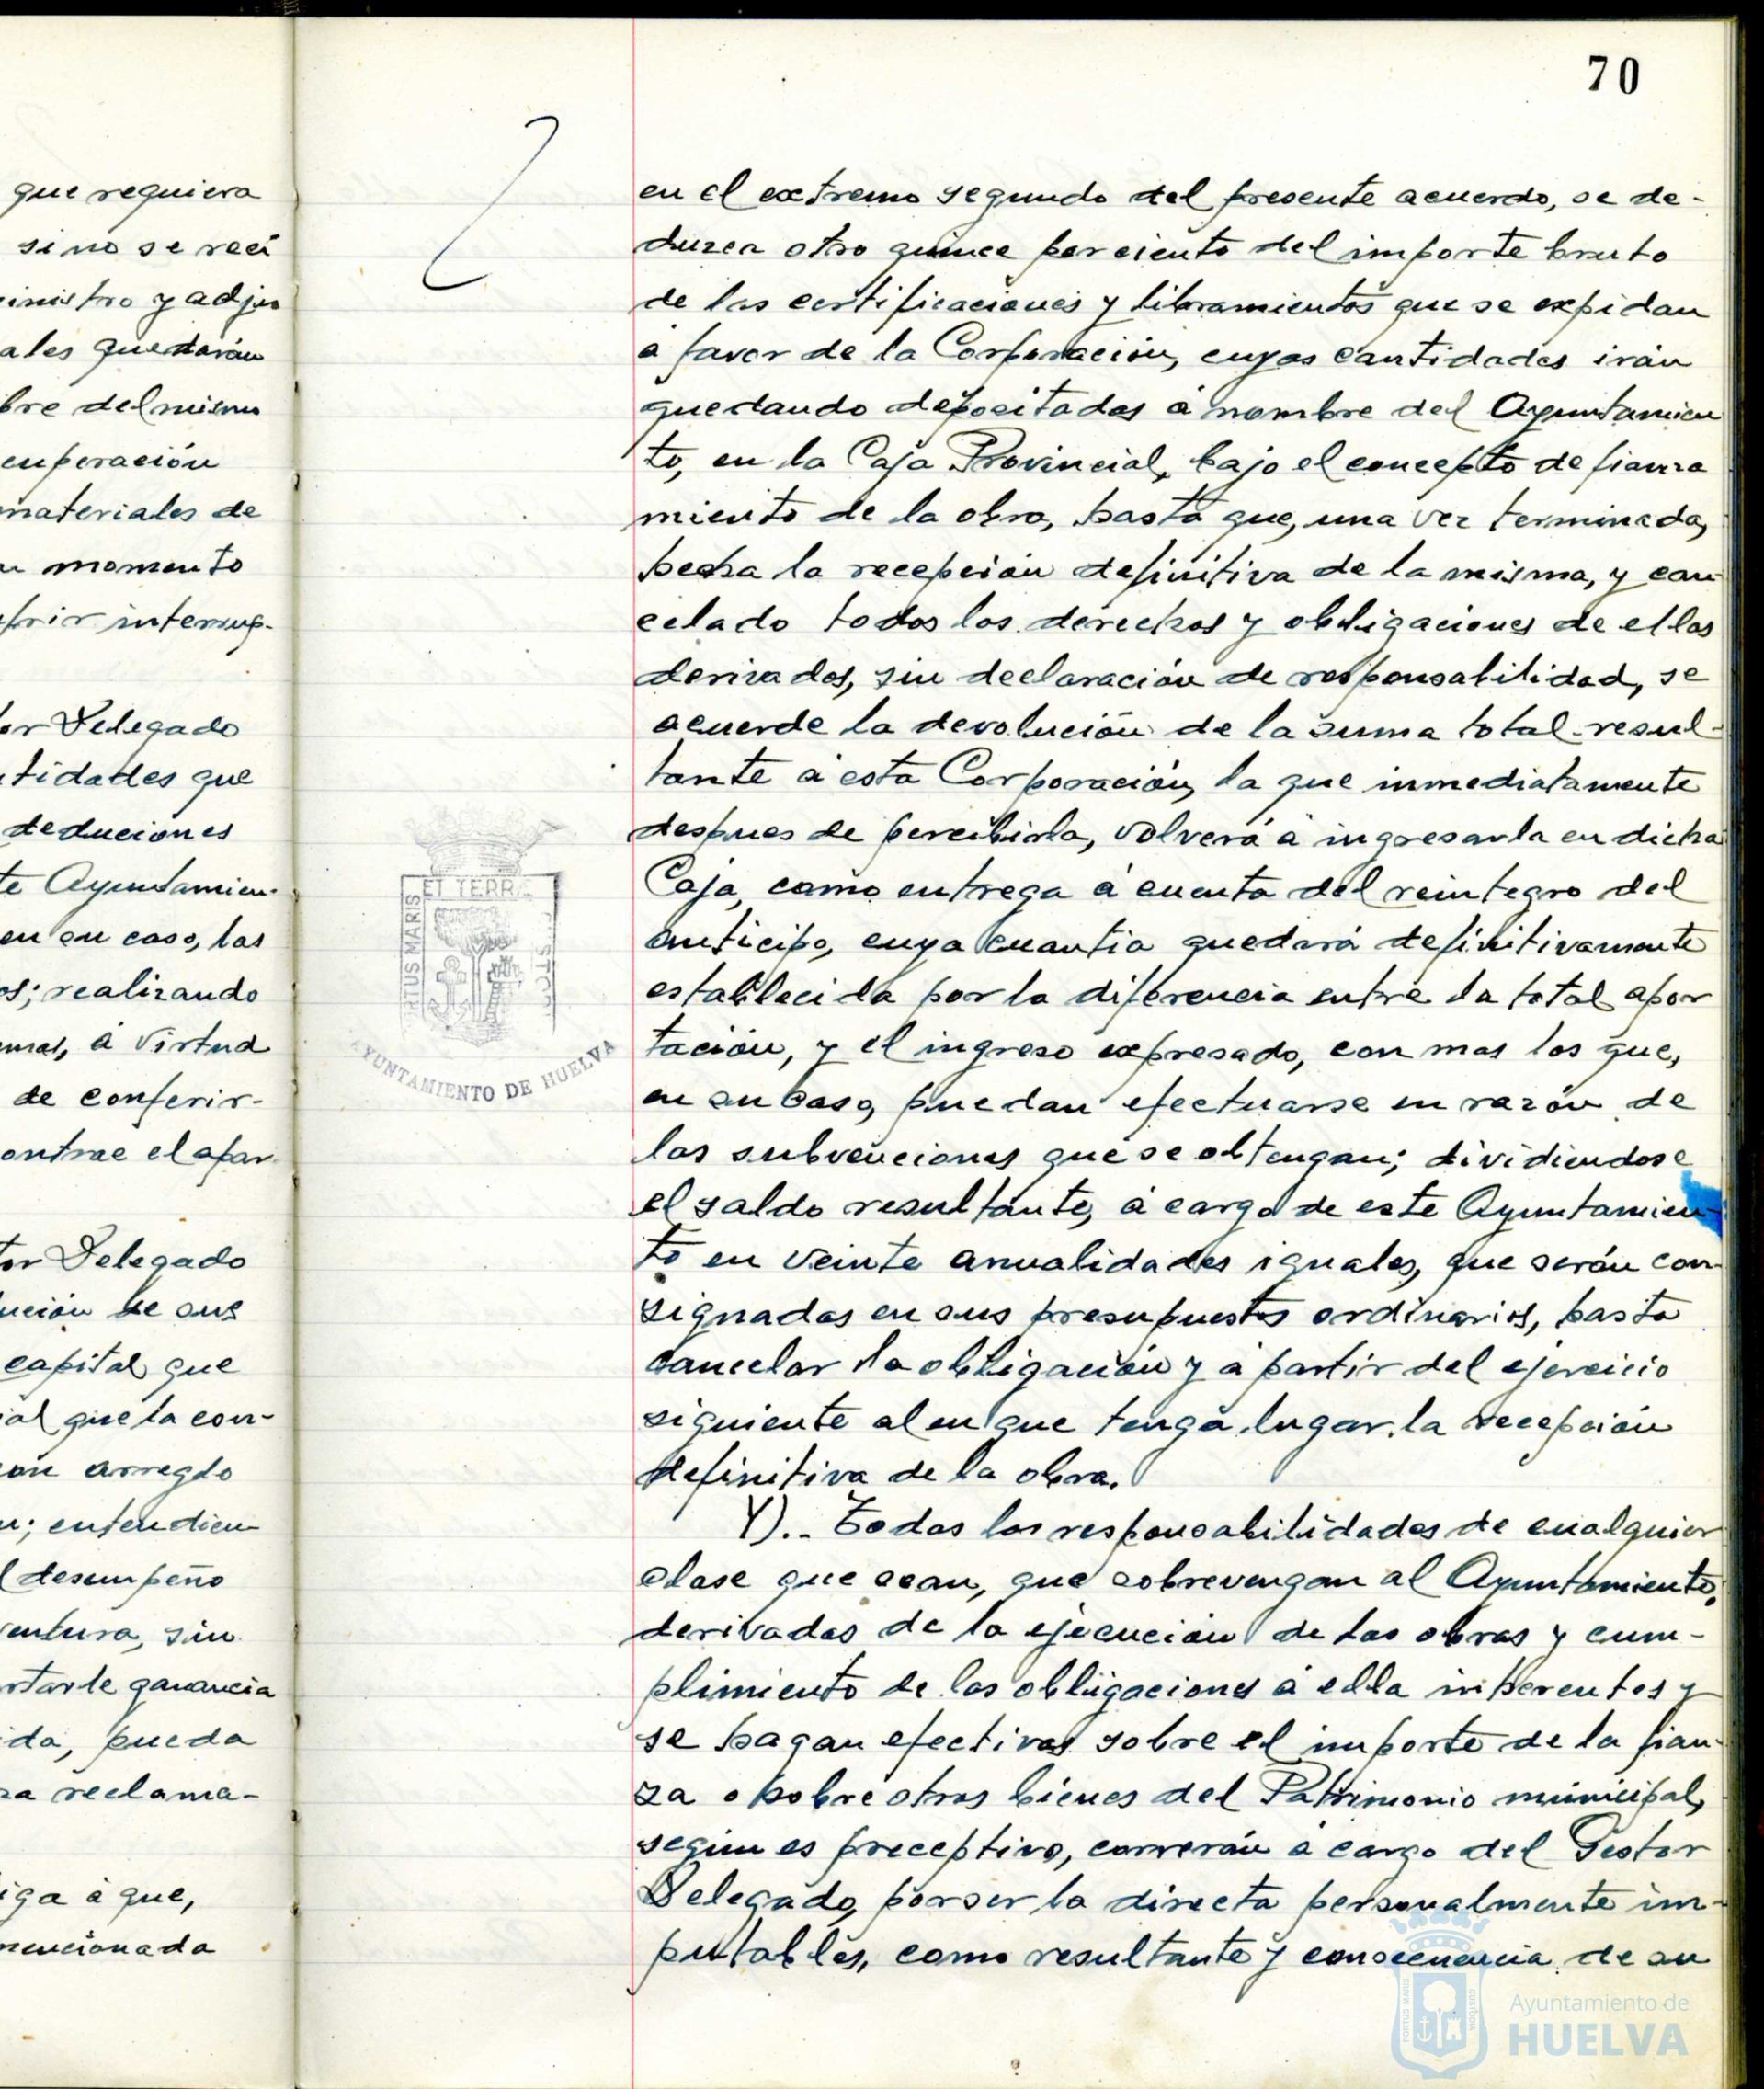 que requiera
si no se reci
inistro y adju
ales quedarán
bre del mismo
cuperación
materiales de
momento
frir interrup-
or Delegado
tidades que
deduciones
te Ayuntamien-
en su caso, las
os; realizando
mas, á virtud
de conferir-
ontrae el apar-
tor Delegado
ución de sus
capital que
ial que la con-
con arreglo
n; entendien-
l desempeño
ventura, sin
rtarle ganancia
ida, pueda
ra reclama-
iga á que,
mencionada
70
en el extremo segundo del presente acuerdo, se de-
duzca otro quince porciento del importe bruto
de las certificaciones y libramientos que se expidan
á favor de la Corporación, cuyas cantidades irán
quedando depositadas á nombre del Ayuntamien
to, en la Caja Provincial, bajo el concepto de fianza
miento de la obra, hasta que, una vez terminada,
hecha la recepción definitiva de la misma, y can-
celado todos los derechos y obligaciones de ellos
derivados, sin declaración de responsabilidad, se
acuerde la devolución de la suma total resul-
tante á esta Corporación, la que inmediatamente
despues de percibirla, volverá á ingresarla en dicha
Caja, como entrega á cuenta del reintegro del
anticipo, cuya cuantia quedará definitivamente
establecida por la diferencia entre la total apor
tación, y el ingreso expresado, con mas los que,
en su caso, puedan efectuarse en razón de
las subvenciones que se obtengan; dividiendose
el saldo resultante, á cargo de este Ayuntamien-
to en veinte anualidades iguales, que serán con-
signadas en sus presupuestos ordinarios, hasta
cancelar la obligación y á partir del ejercicio
siguiente al en que tenga lugar la recepción
definitiva de la obra.
Y).- Todas las responsabilidades de cualquier
clase que sean, que sobrevengan al Ayuntamiento,
derivadas de la ejecución de las obras y cum-
plimiento de las obligaciones á ella inherentes y
se hagan efectivas sobre el importe de la fian-
za o sobre otros bienes del Patrimonio municipal,
según es preceptivo, correrán á cargo del Gestor
Delegado, por ser la directa personalmente im-
putables, como resultante y consecuencia de su
ET TERRÆ
PORTUS MARIS
CUSTODIA
AYUNTAMIENTO DE HUELVA
PORTUS MARIS
CUSTODIA
Ayuntamiento de
HUELVA